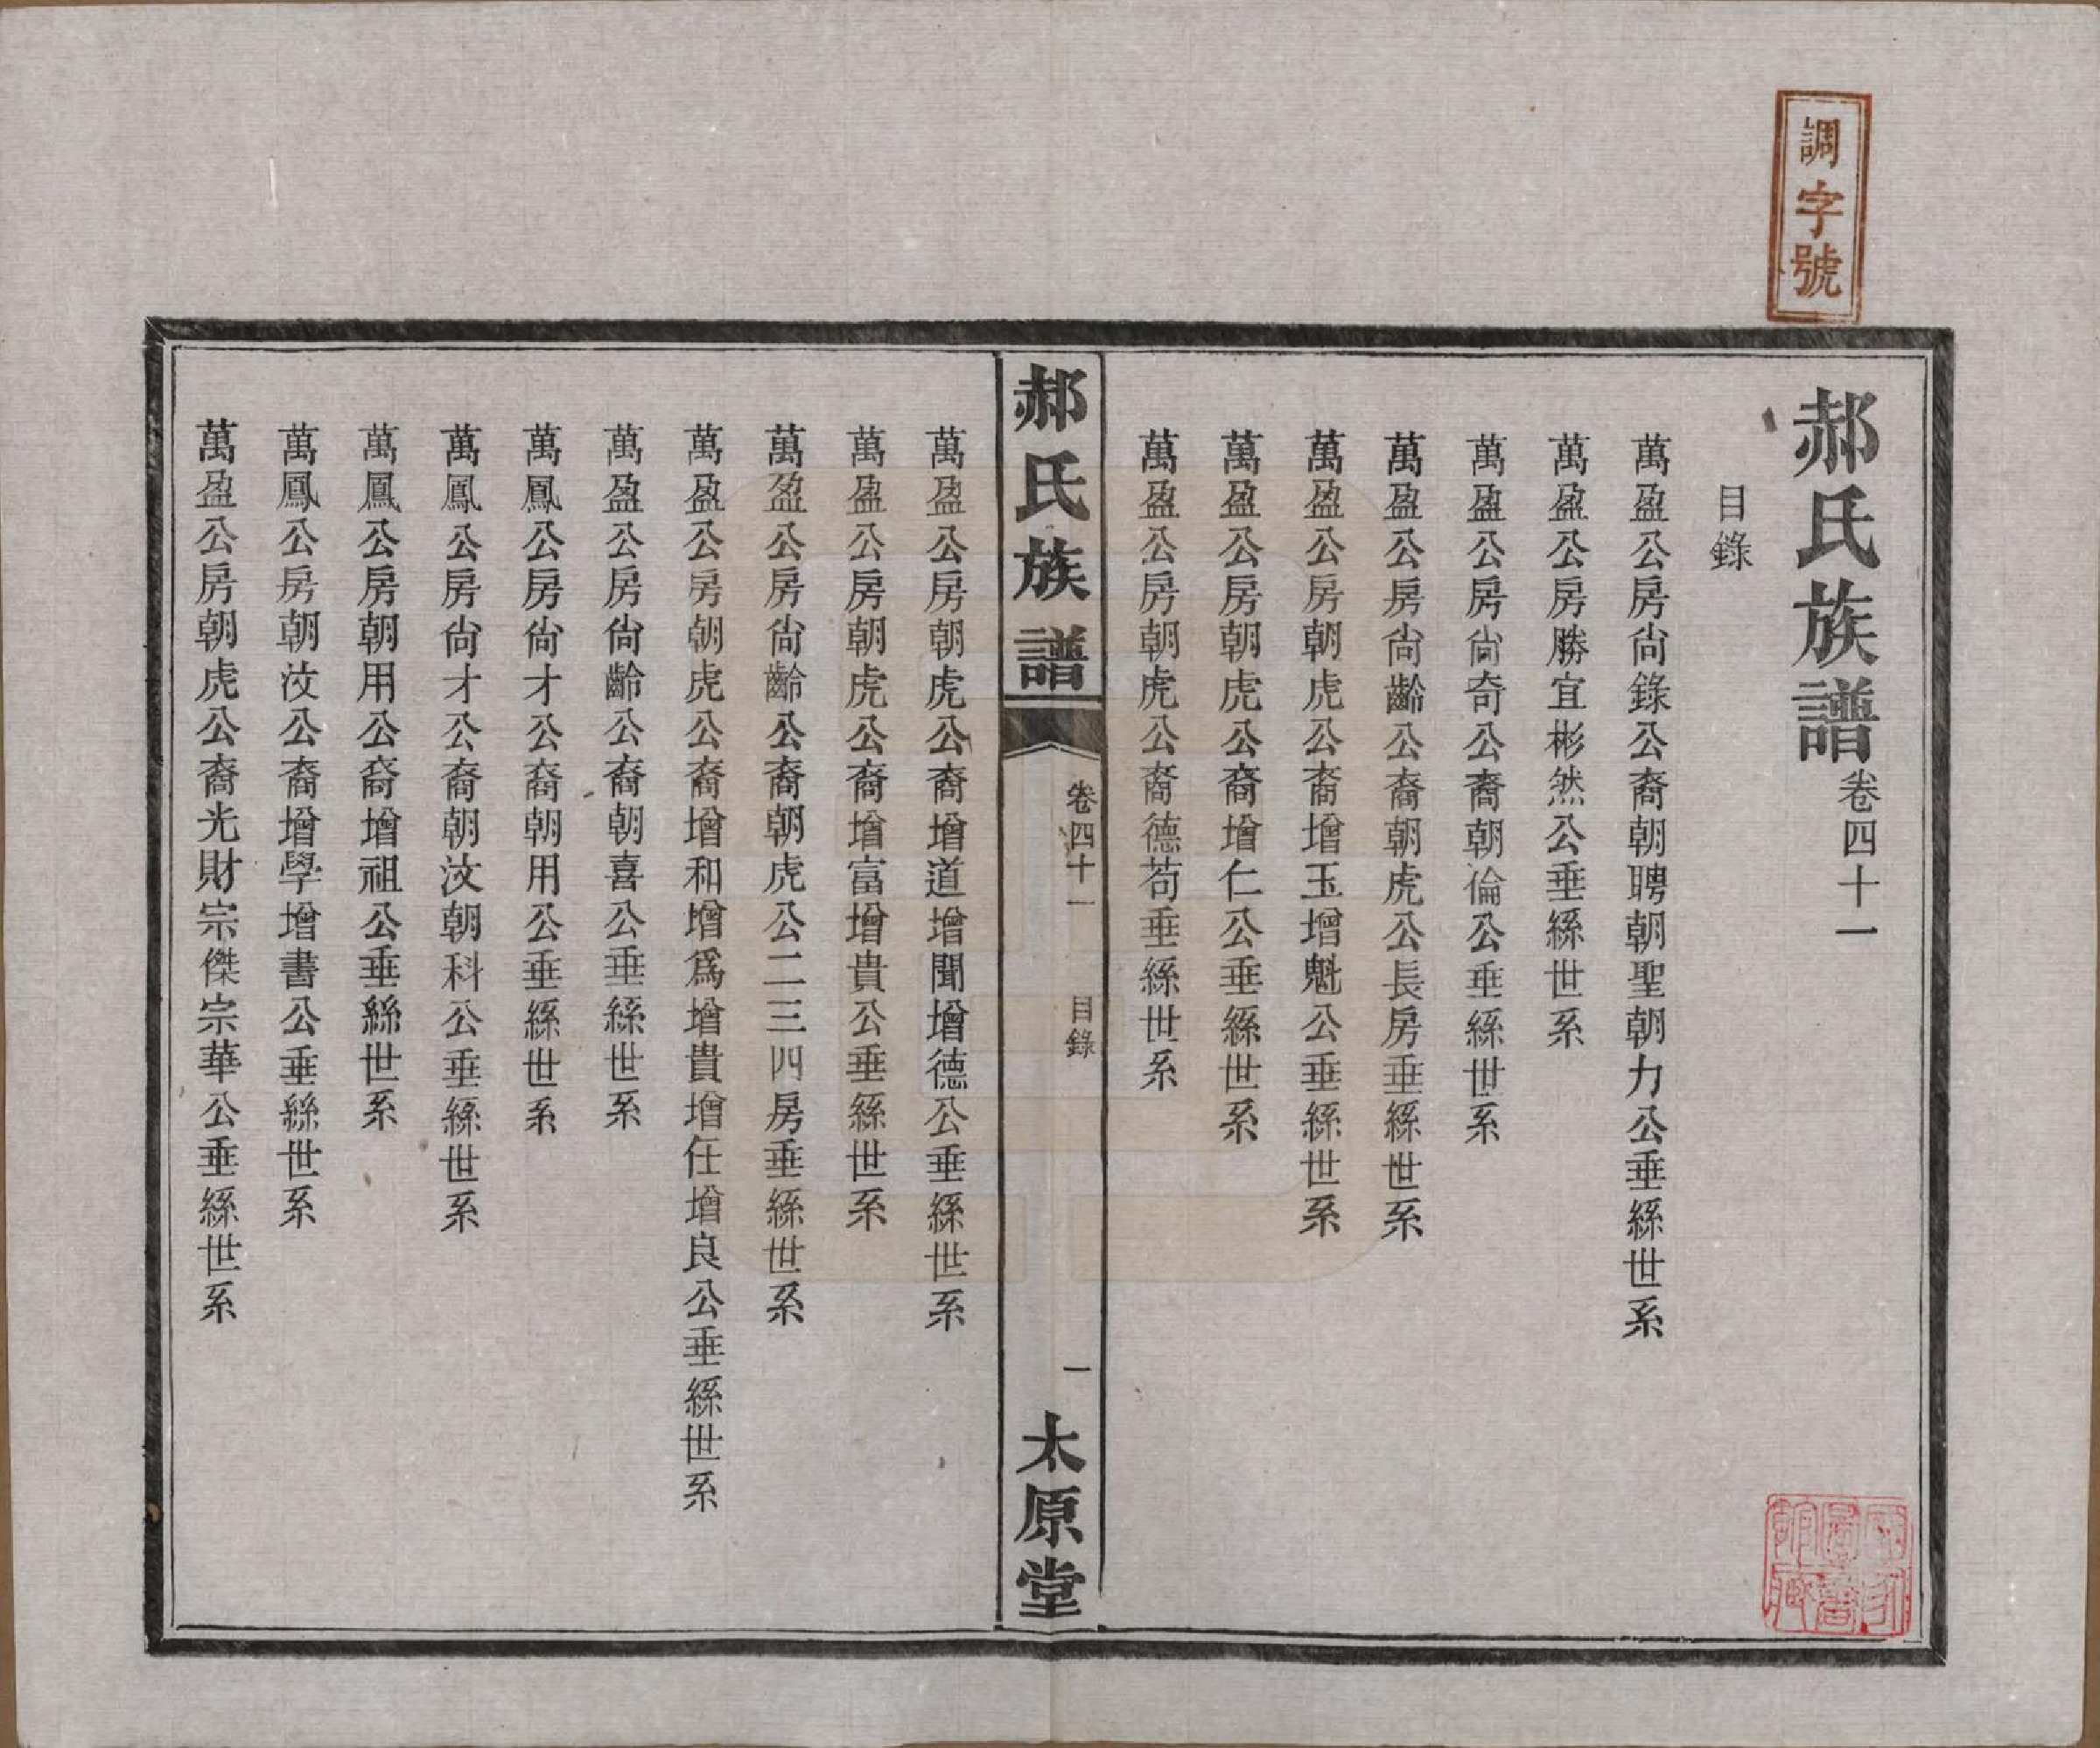 調字號
郝氏族譜卷四十一
目錄
萬盈公房尙錄公裔朝聘朝聖朝力公垂絲世系
萬盈公房勝宜彬然公垂絲世系
萬盈公房尙奇公裔朝倫公垂絲世系
萬盈公房尙齡公裔朝虎公長房垂絲世系
萬盈公房朝虎公裔增玉增魁公垂絲世系
萬盈公房朝虎公裔增仁公垂絲世系
萬盈公房朝虎公裔德苟垂絲世系
郝氏族譜
卷四十一
目錄
一
太原堂
萬盈公房朝虎公裔增道增聞增德公垂絲世系
萬盈公房朝虎公裔增富增貴公垂絲世系
萬盈公房尙齡公裔朝虎公二三四房垂絲世系
萬盈公房朝虎公裔增和增爲增貴增任增良公垂絲世系
萬盈公房尙齡公裔朝喜公垂絲世系
萬鳳公房尙才公裔朝用公垂絲世系
萬鳳公房尙才公裔朝汶朝科公垂絲世系
萬鳳公房朝用公裔增祖公垂絲世系
萬鳳公房朝汶公裔增學增書公垂絲世系
萬盈公房朝虎公裔光財宗傑宗華公垂絲世系